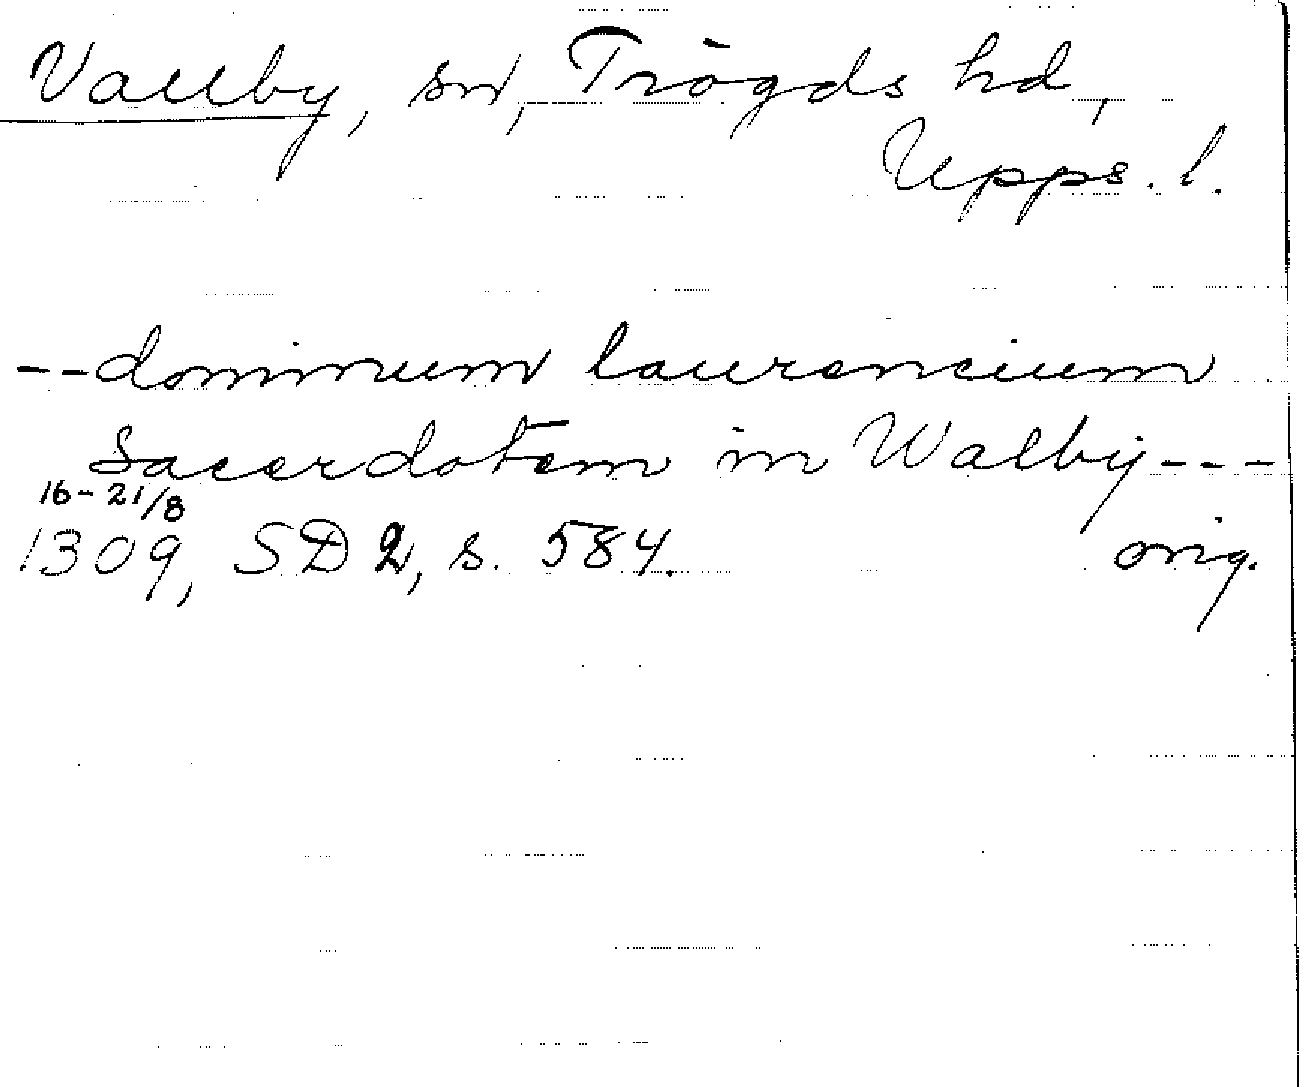 Vallby, sn, Trögds hd,
Upps. l.
-- dominum laurencium
Sacerdotem in Walby ---
16-21/8
1309, SD 2, s. 584. orig.